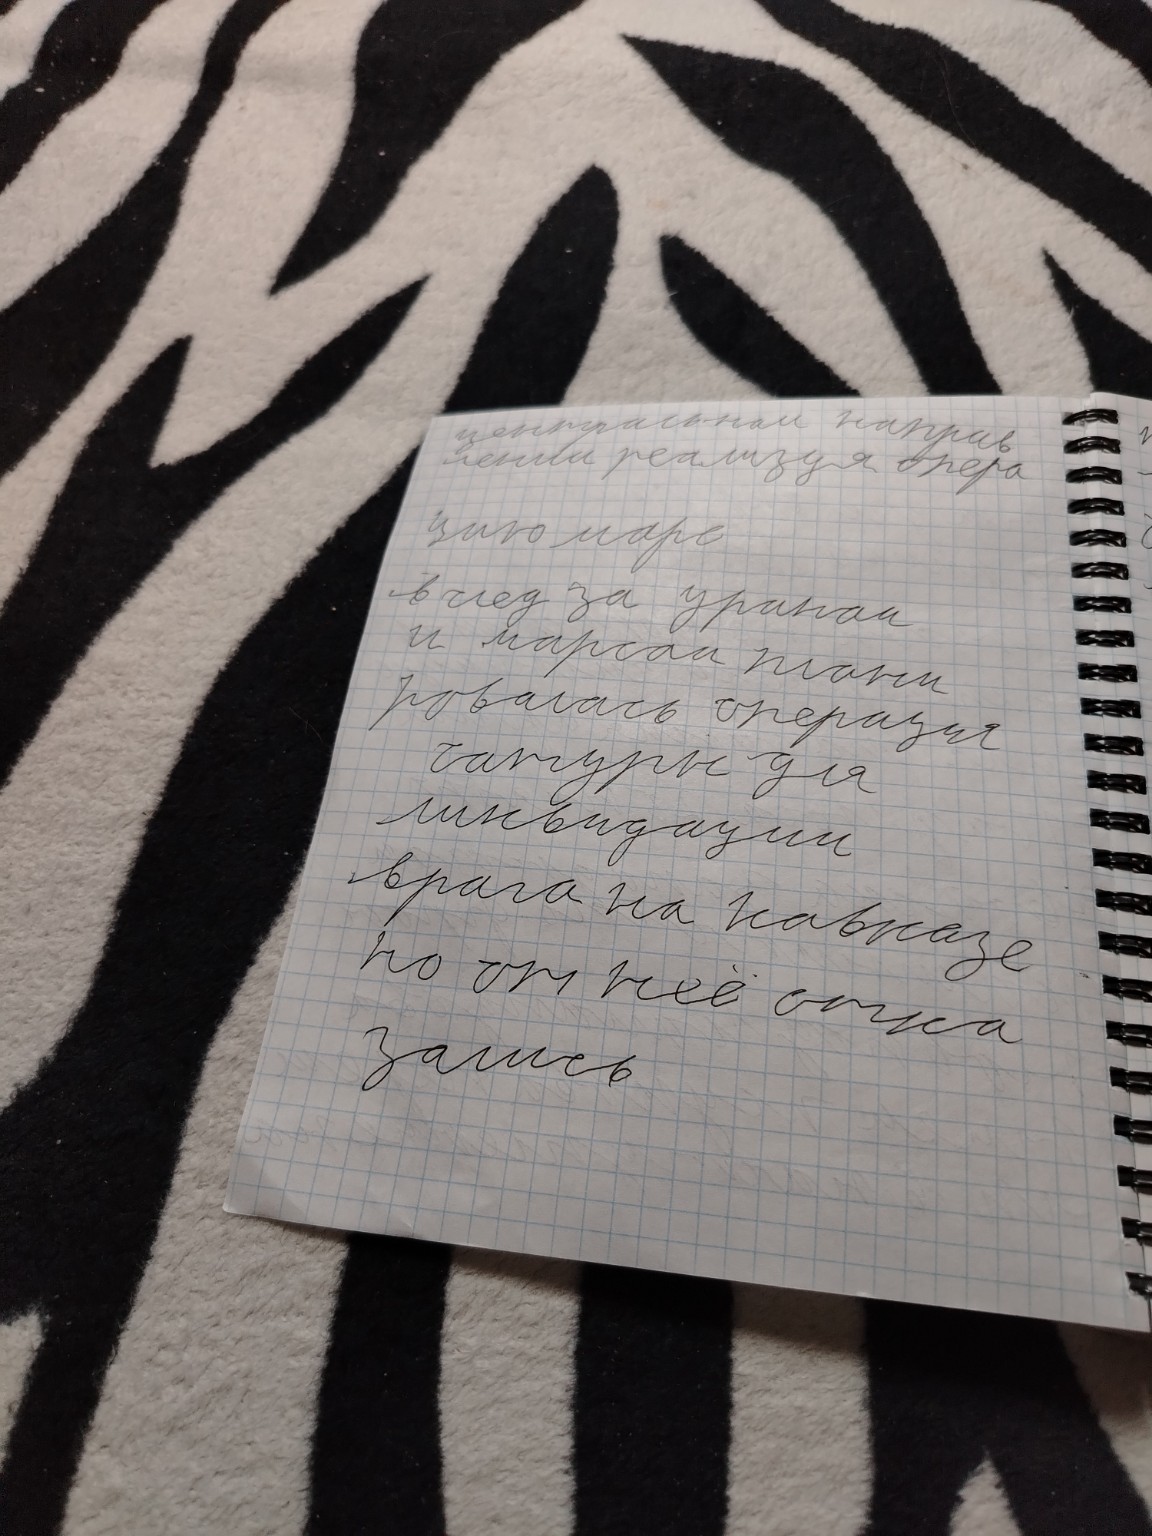 центральном направ
лении реализуя опера
цию марс
вслед за ураном
и марсом плани
ровалась операция
сатурн для
ликвидации
врага на кавказе
но от неё отка
зались